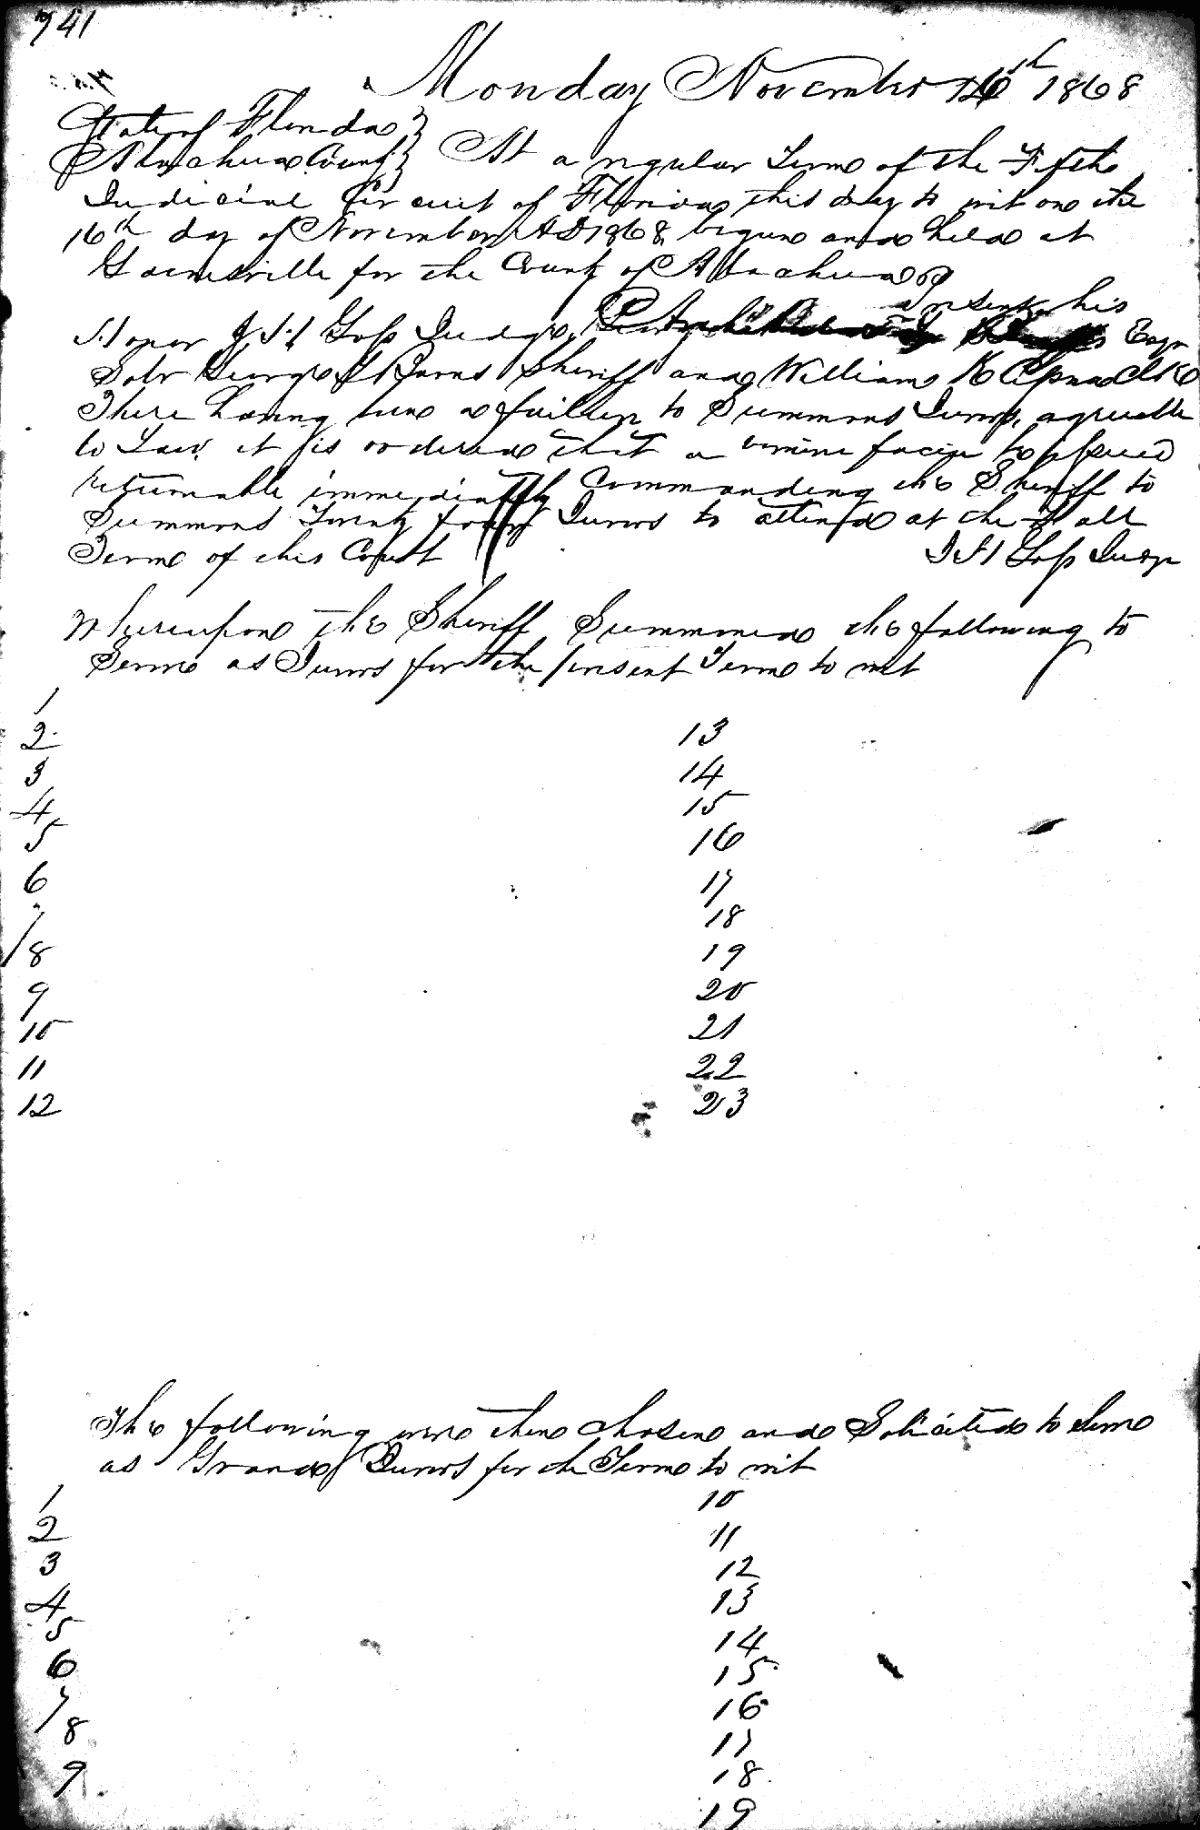 741
Monday November 16th 1868
State of Florida }
Alachua County } At a regular Term of the Fifth
Judicial Circuit of Florida this day to wit on the
16th day of November AD 1868 begun and held at
Gainesville for the County of Alachua
Present his
Honor J H Goss Judge Esqr
Solr George Sheriff and William K Clk
There having been a failure to Summons Jurors agreeable
to Law it is ordered that a venire facias to issued
returnable immediatly Commanding the Sheriff to
Summons Twenty four Jurors to attend at the Fall
Term of this Court
J H Goss Judge
Whereupon the Sheriff Summoned the following to
Serve as Jurors for the present Term to wit
1
2 13
3 14
4 15
5 16
6 17
7 18
8 19
9 20
10 21
11 22
12 23
The following were then chosen and Solicited to Serve
as Grand Jurors for the Term to wit
1 10
2 11
3 12
4 13
5 14
6 15
7 16
8 17
9 18
19